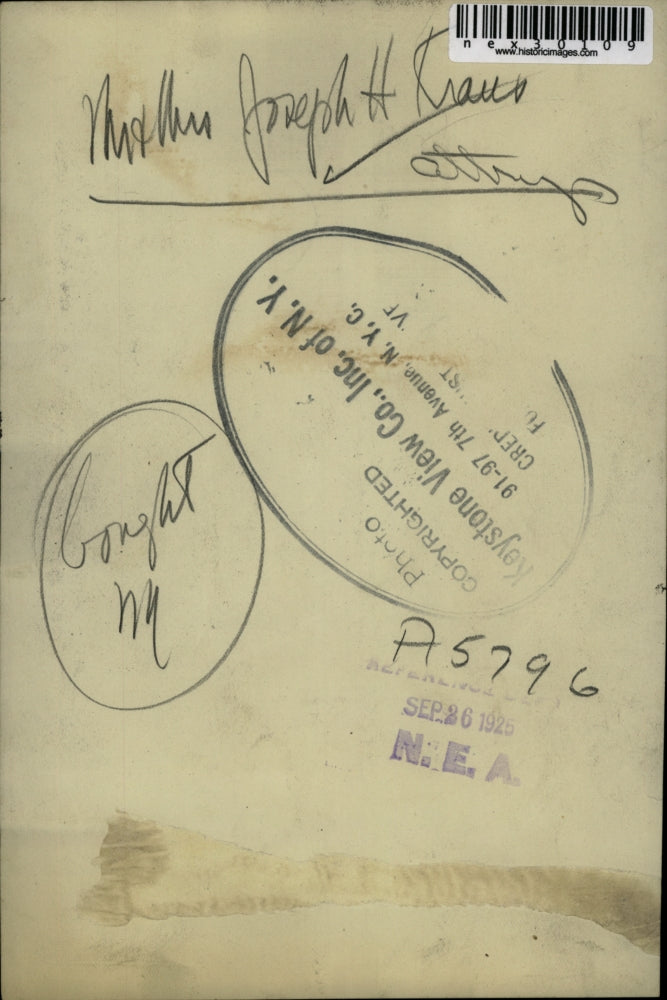 nex30109
www.historicimages.com
Joseph H Kraus
Photo
COPYRIGHTED
Keystone View Co., Inc. of N. Y.
91-97 7th Avenue, N. Y. C.
bought
NY
A5796
REFERENCE
SEP 26 1925
N. E. A.